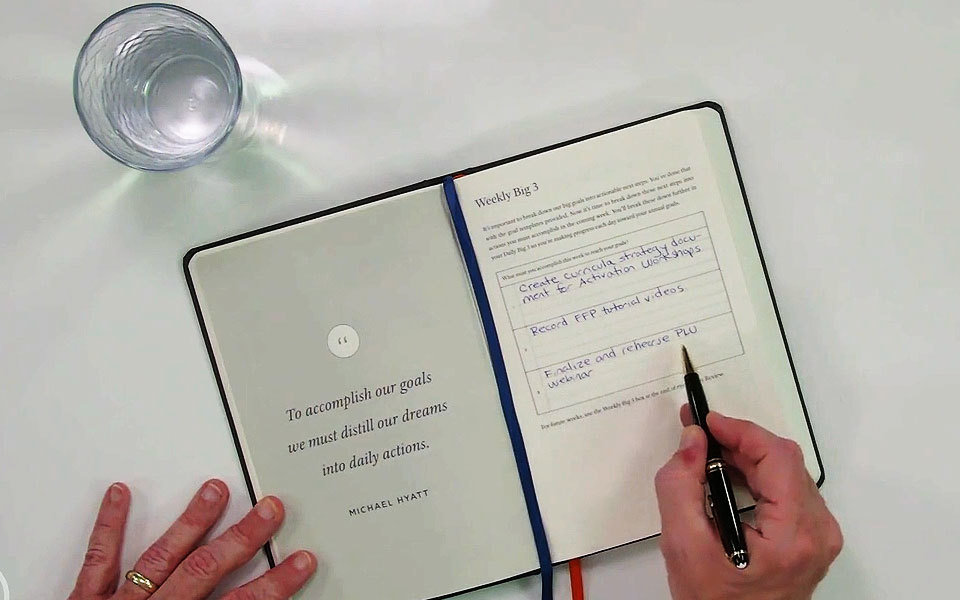 “
To accomplish our goals
we must distill our dreams
into daily actions.
MICHAEL HYATT
Weekly Big 3
It's important to break down our big goals into actionable next steps. You've done that
with the goal templates provided. Now it's time to break down those next steps into
actions you must accomplish in the coming week. You'll break these down further in
your Daily Big 3 so you're making progress each day toward your annual goals.
What must you accomplish this week to reach your goals?
Create curricula strategy docu-
ment for Activation Workshops
Record FFP tutorial videos
Finalize and rehearse PLU
webinar
For future weeks, use the Weekly Big 3 box at the end of Review